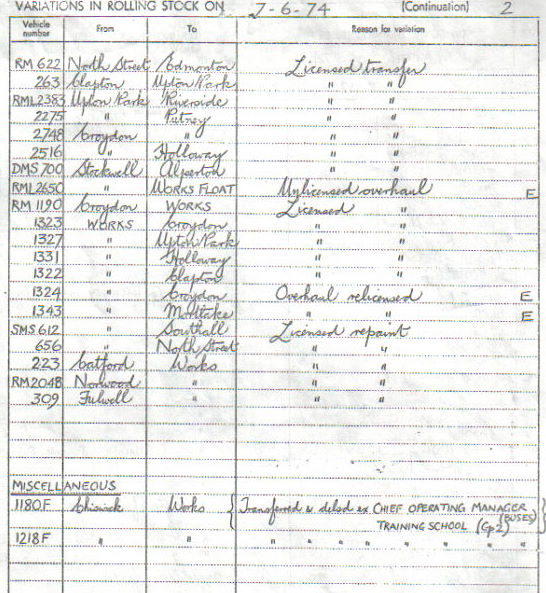 VARIATIONS IN ROLLING STOCK ON 7-6-74 (Continuation) 2
Vehicle number From To Reason for variation
RM 622 North Street Edmonton Licensed transfer
263 Clapton Upton Park " "
RML2383 Upton Park Riverside " "
2275 " Putney " "
2748 Croydon " " "
2516 " Holloway " "
DMS 700 Stockwell Alperton " "
RML2650 " WORKS FLOAT Unlicensed overhaul E
RM 1190 Croydon WORKS Licensed "
1323 WORKS Croydon " "
1327 " Upton Park " "
1331 " Holloway " "
1322 " Clapton " "
1324 " Croydon Overhaul relicensed E
1343 " Mortlake " " E
SMS 612 " Southall Licensed repaint
656 " North Street " "
223 Catford Works " "
RM2048 Norwood " " "
309 Fulwell " " "
MISCELLANEOUS
1180F Chiswick Works { Transferred & delsd ex CHIEF OPERATING MANAGER (BUSES) }
TRAINING SCHOOL (Gp2)
1218F " " " " " " " " " "